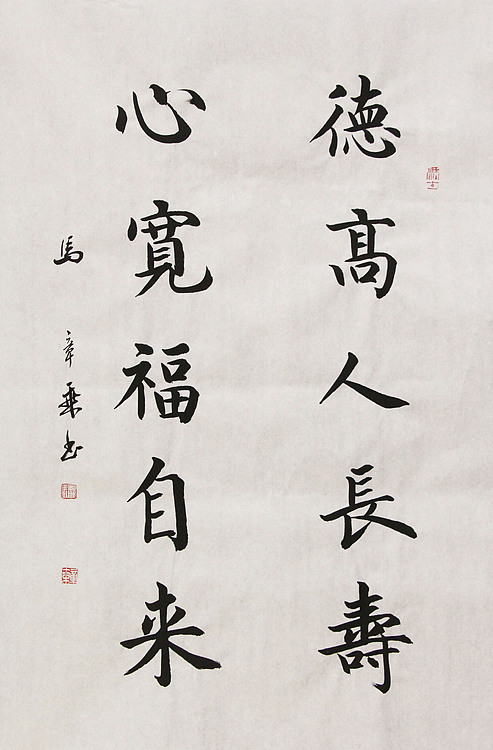 德高人長壽
心寬福自来
馬章乘书